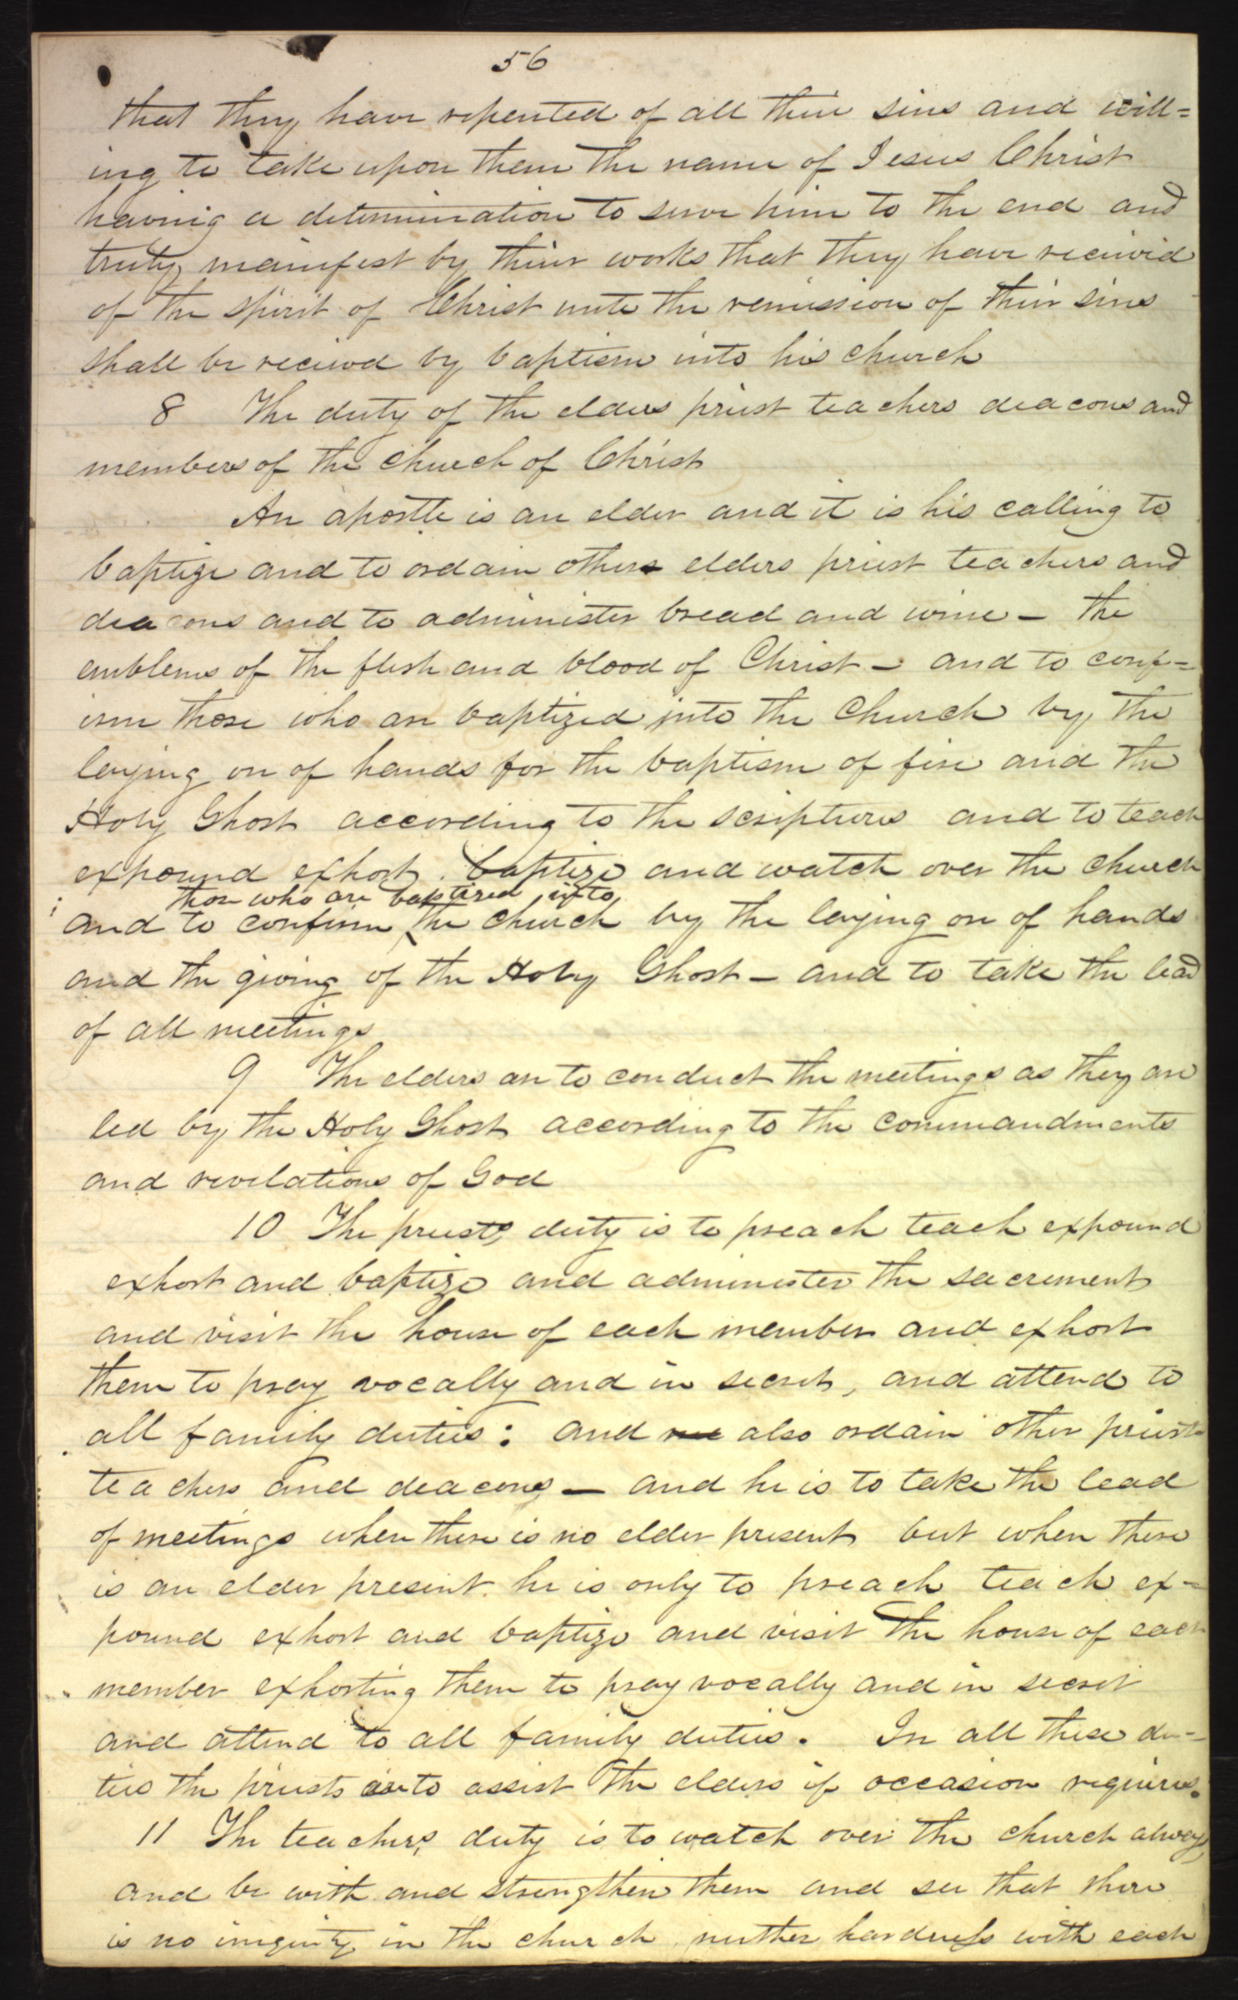 56
that they have repented of all their sins and will=
ing to take upon them the name of Jesus Christ
having a determination to serve him to the end and
truly manifest by their works that they have received
of the spirit of Christ unto the remission of their sins
shall be recieved by baptism into his church
8 The duty of the elders priest teachers deacons and
members of the church of Christ
An apostle is an elder and it is his calling to
baptize and to ordain others elders priest teachers and
deacons and to administer bread and wine — the
emblems of the flesh and blood of Christ — and to conf=
irm those who are baptized into the Church by the
laying on of hands for the baptism of fire and the
Holy Ghost according to the scriptures and to teach
expound exhort baptize and watch over the church
those who are baptized into
and to confirm the church by the laying on of hands
and the giving of the Holy Ghost — and to take the lead
of all meetings
9 The elders are to conduct the meetings as they are
led by the Holy Ghost according to the commandments
and revelations of God
10 The priests duty is to preach teach expound
exhort and baptize and administer the sacrement
and visit the house of each member and exhort
them to pray vocally and in secret, and attend to
all family duties: and also ordain other priests
teachers and deacons — and he is to take the lead
of meetings when there is no elder present but when there
is an elder present he is only to preach teach ex=
pound exhort and baptize and visit the house of each
member exhorting them to pray vocally and in secret
and attend to all family duties. In all these du=
ties the priests are to assist the elders if occasion requires.
11 The teachers, duty is to watch over the church always,
and be with and strengthen them and see that there
is no iniquity in the church neither hardness with each